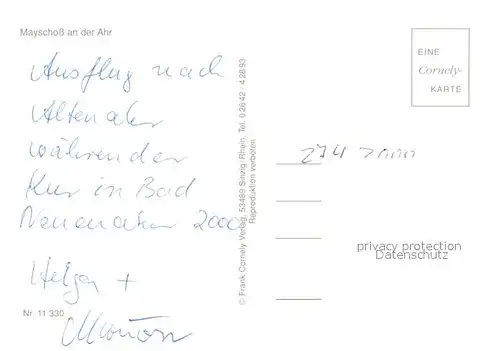 Mayschoß an der Ahr
EINE
Cornely-
KARTE
Ausflug nach
Altenahr
während der
Kur in Bad
Neuenahr 2000
Helga +
Nr. 11 330
© Frank Cornely Verlag, 53489 Sinzig /Rhein, Tel. 0 26 42 / 4 28 93
Reproduktion verboten
privacy protection
Datenschutz